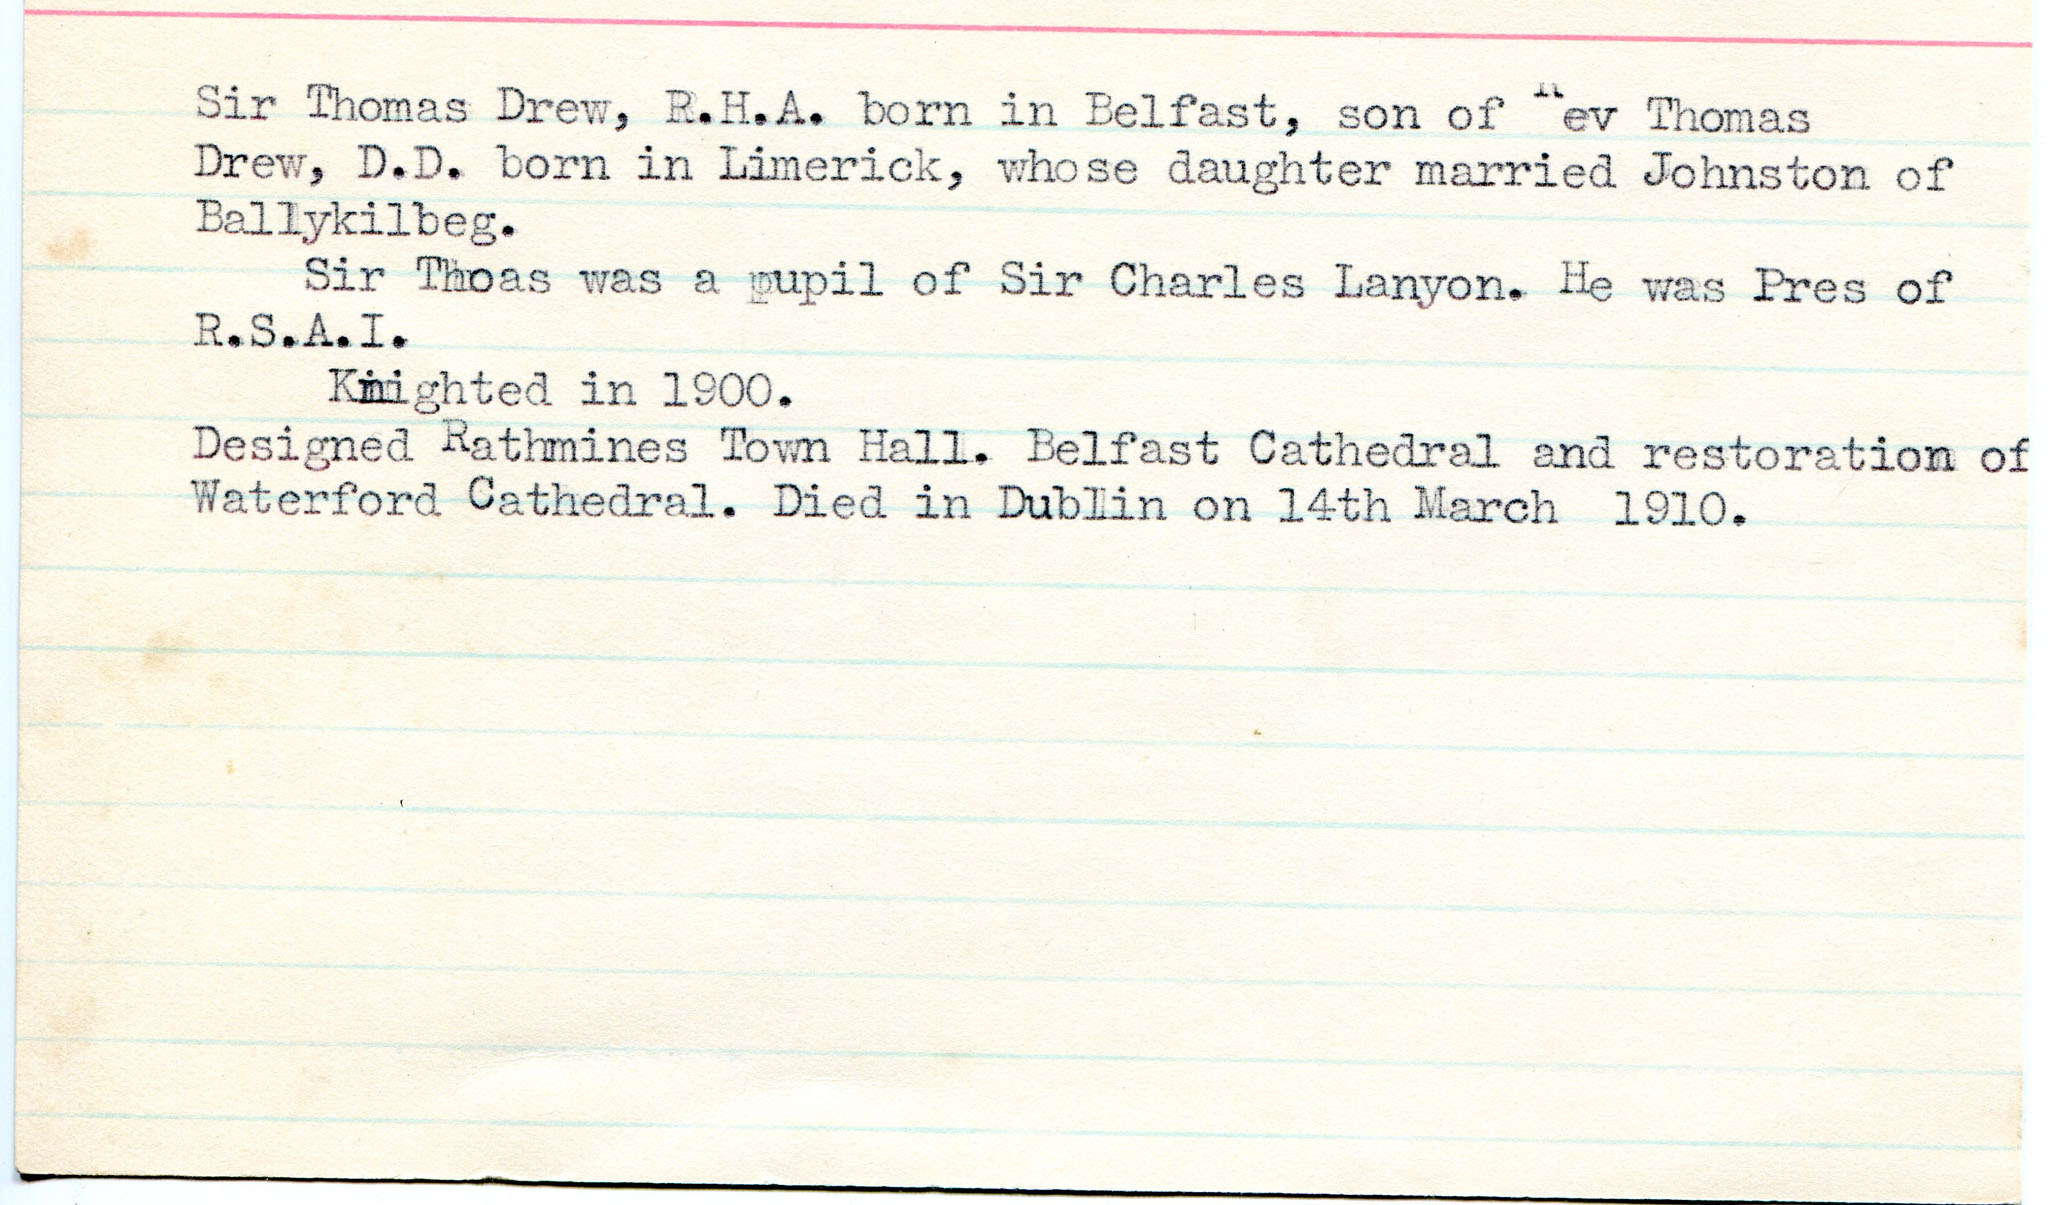 Sir Thomas Drew, R.H.A. born in Belfast, son of Rev Thomas
Drew, D.D. born in Limerick, whose daughter married Johnston of
Ballykilbeg.
Sir Thoas was a pupil of Sir Charles Lanyon. He was Pres of
R.S.A.I.
Knighted in 1900.
Designed Rathmines Town Hall. Belfast Cathedral and restoration of
Waterford Cathedral. Died in Dublin on 14th March 1910.